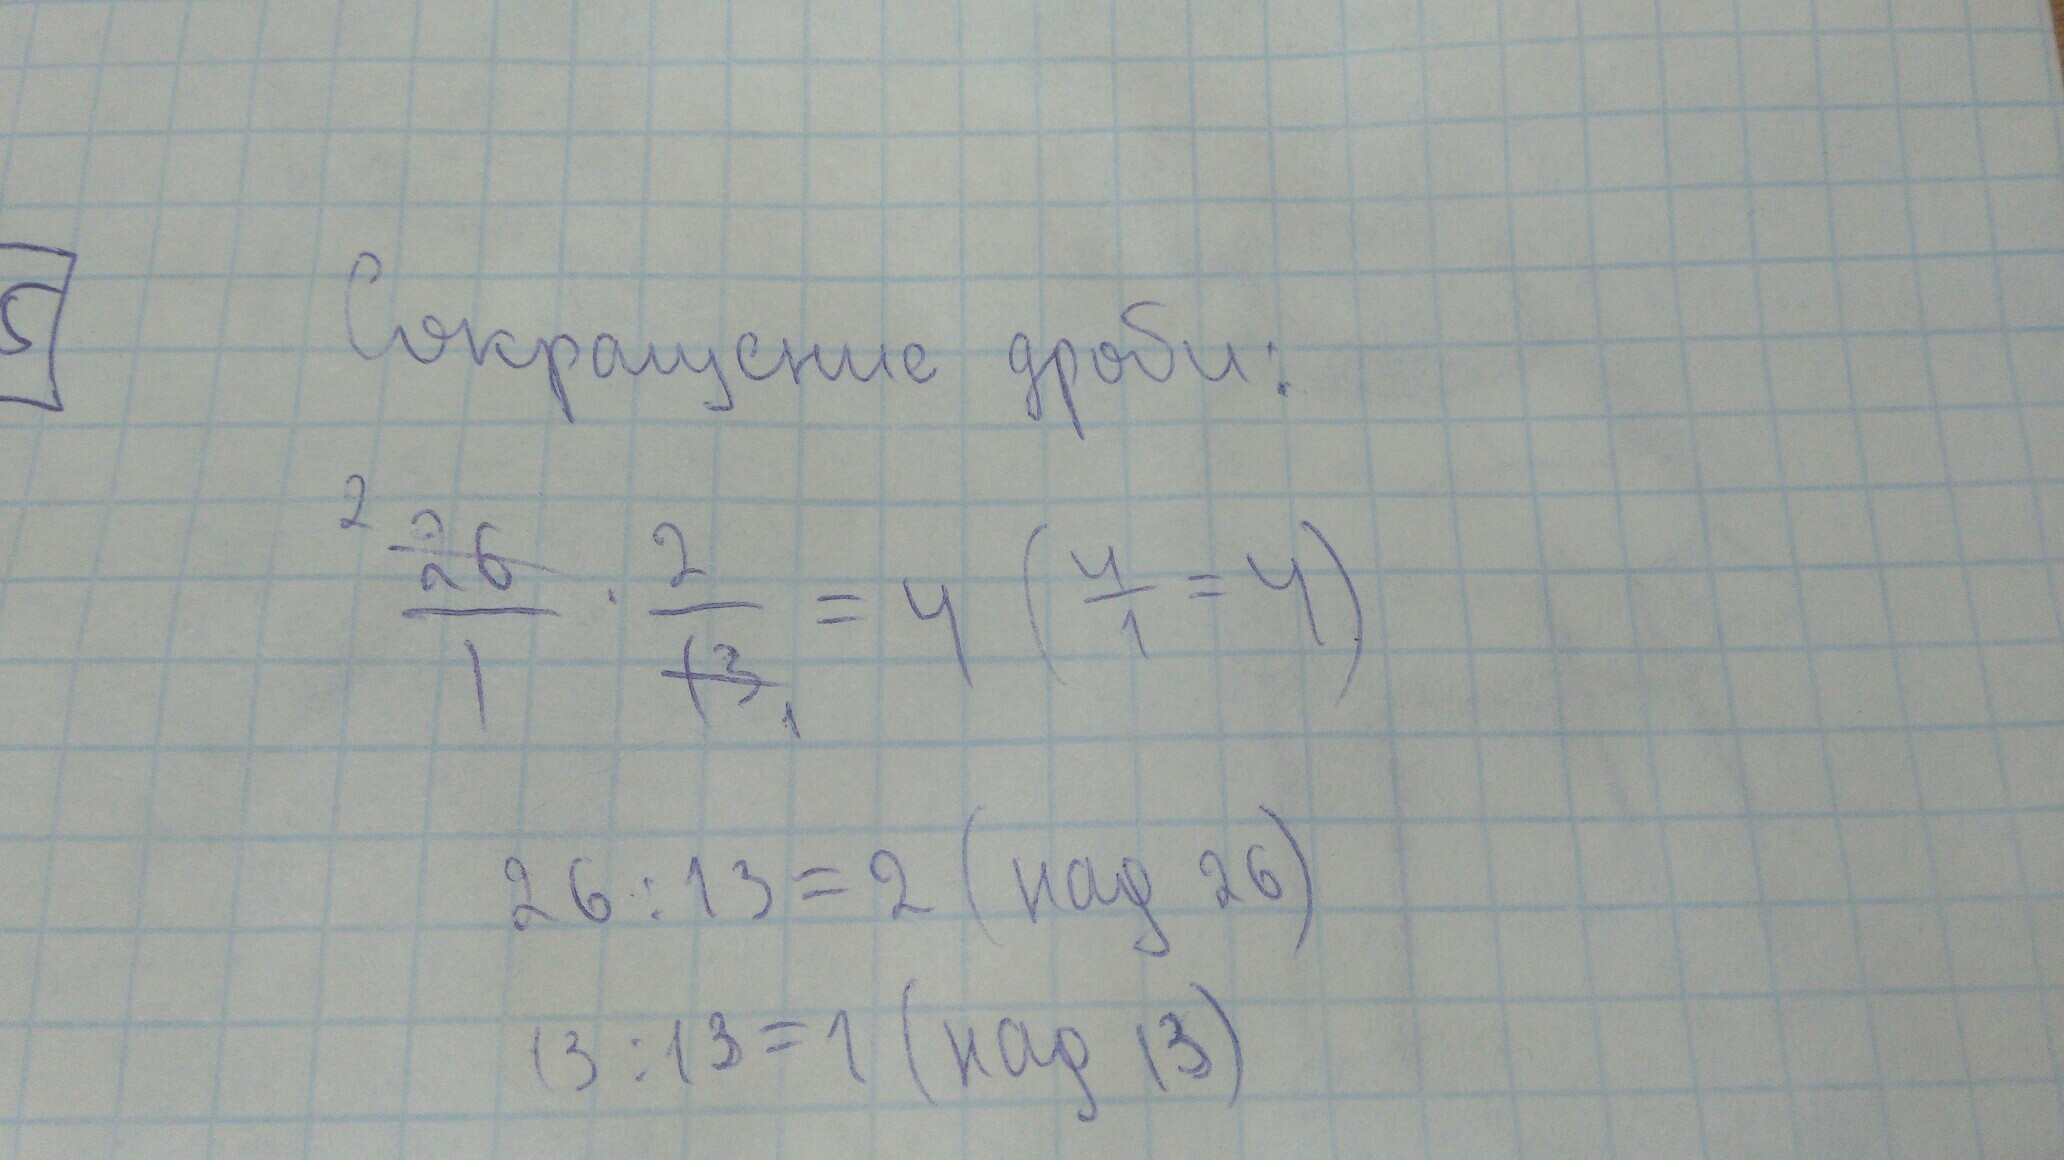 5
Сокращение дроби:
2 26/1 · 2/13 1 = 4 (4/1 = 4)
26 : 13 = 2 (над 26)
13 : 13 = 1 (над 13)